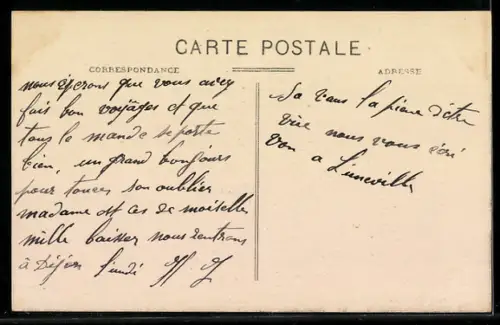 CARTE POSTALE
CORRESPONDANCE
ADRESSE
nous éperons que vous avez
fais bon voyages et que
tous le monde se porte
bien, un grand bonjours
pour toutes son oublier
madame et ces de moiselles
mille baisser nous rentrons
à Dijon lundi
Sa vaus la piene d'etre
vue nous vous
a Luneville